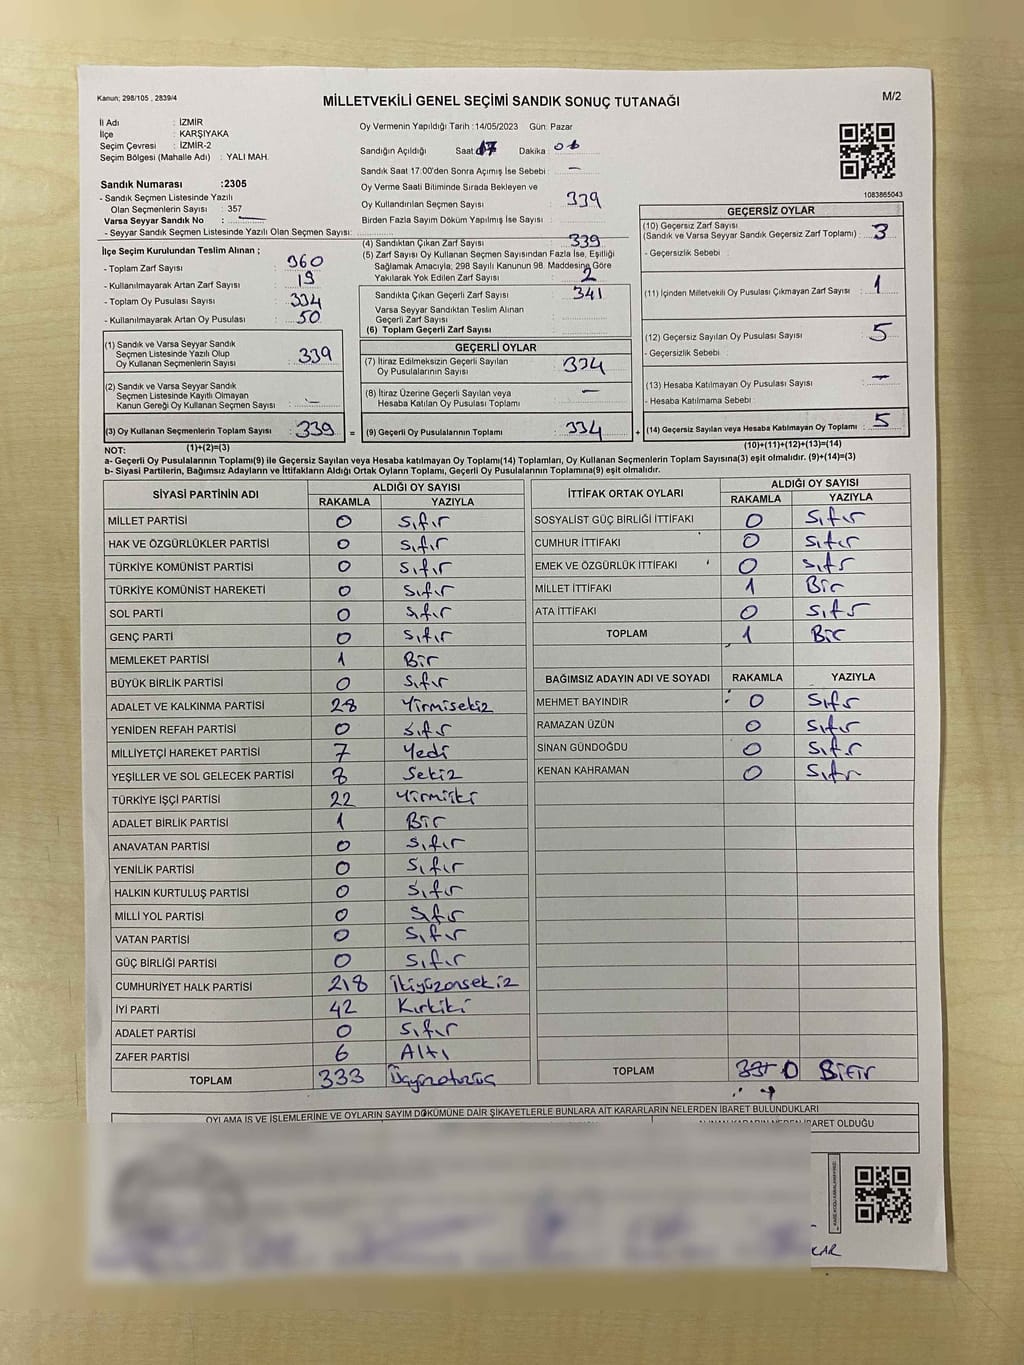 Kanun; 298/105 , 2839/4
MİLLETVEKİLİ GENEL SEÇİMİ SANDIK SONUÇ TUTANAĞI
M/2
İl Adı : İZMİR
İlçe : KARŞIYAKA
Seçim Çevresi : İZMİR-2
Seçim Bölgesi (Mahalle Adı) : YALI MAH.
Sandık Numarası :2305
- Sandık Seçmen Listesinde Yazılı
Olan Seçmenlerin Sayısı : 357
Varsa Seyyar Sandık No : —
- Seyyar Sandık Seçmen Listesinde Yazılı Olan Seçmen Sayısı:
Oy Vermenin Yapıldığı Tarih :14/05/2023 Gün: Pazar
Sandığın Açıldığı Saat 17 Dakika :
Sandık Saat 17:00'den Sonra Açımış İse Sebebi : —
Oy Verme Saati Bitiminde Sırada Bekleyen ve
Oy Kullandırılan Seçmen Sayısı : 339
Birden Fazla Sayım Döküm Yapılmış İse Sayısı :
1083865043
İlçe Seçim Kurulundan Teslim Alınan ;
- Toplam Zarf Sayısı : 360
- Kullanılmayarak Artan Zarf Sayısı : 19
- Toplam Oy Pusulası Sayısı : 334
- Kullanılmayarak Artan Oy Pusulası : 50
(1) Sandık ve Varsa Seyyar Sandık
Seçmen Listesinde Yazılı Olup
Oy Kullanan Seçmenlerin Sayısı : 339
(2) Sandık ve Varsa Seyyar Sandık
Seçmen Listesinde Kayıtlı Olmayan
Kanun Gereği Oy Kullanan Seçmen Sayısı : —
(3) Oy Kullanan Seçmenlerin Toplam Sayısı : 339
(4) Sandıktan Çıkan Zarf Sayısı : 339
(5) Zarf Sayısı Oy Kullanan Seçmen Sayısından Fazla İse, Eşitliği
Sağlamak Amacıyla, 298 Sayılı Kanunun 98. Maddesine Göre
Yakılarak Yok Edilen Zarf Sayısı : 2
Sandıkta Çıkan Geçerli Zarf Sayısı : 341
Varsa Seyyar Sandıktan Teslim Alınan
Geçerli Zarf Sayısı :
(6) Toplam Geçerli Zarf Sayısı :
GEÇERLİ OYLAR
(7) İtiraz Edilmeksizin Geçerli Sayılan
Oy Pusulalarının Sayısı : 334
(8) İtiraz Üzerine Geçerli Sayılan veya
Hesaba Katılan Oy Pusulası Toplamı : —
= (9) Geçerli Oy Pusulalarının Toplamı : 334
GEÇERSİZ OYLAR
(10) Geçersiz Zarf Sayısı
(Sandık ve Varsa Seyyar Sandık Geçersiz Zarf Toplamı) : 3
- Geçersizlik Sebebi :
(11) İçinden Milletvekili Oy Pusulası Çıkmayan Zarf Sayısı : 1
(12) Geçersiz Sayılan Oy Pusulası Sayısı : 5
- Geçersizlik Sebebi :
(13) Hesaba Katılmayan Oy Pusulası Sayısı : —
- Hesaba Katılmama Sebebi :
+ (14) Geçersiz Sayılan veya Hesaba Katılmayan Oy Toplamı : 5
NOT: (1)+(2)=(3)
(10)+(11)+(12)+(13)=(14)
a- Geçerli Oy Pusulalarının Toplamı(9) ile Geçersiz Sayılan veya Hesaba katılmayan Oy Toplamı(14) Toplamları, Oy Kullanan Seçmenlerin Toplam Sayısına(3) eşit olmalıdır. (9)+(14)=(3)
b- Siyasi Partilerin, Bağımsız Adayların ve İttifakların Aldığı Ortak Oyların Toplamı, Geçerli Oy Pusulalarının Toplamına(9) eşit olmalıdır.
SİYASİ PARTİNİN ADI ALDIĞI OY SAYISI
RAKAMLA YAZIYLA
MİLLET PARTİSİ 0 Sıfır
HAK VE ÖZGÜRLÜKLER PARTİSİ 0 Sıfır
TÜRKİYE KOMÜNİST PARTİSİ 0 Sıfır
TÜRKİYE KOMÜNİST HAREKETİ 0 Sıfır
SOL PARTİ 0 Sıfır
GENÇ PARTİ 0 Sıfır
MEMLEKET PARTİSİ 1 Bir
BÜYÜK BİRLİK PARTİSİ 0 Sıfır
ADALET VE KALKINMA PARTİSİ 28 Yirmisekiz
YENİDEN REFAH PARTİSİ 0 Sıfır
MİLLİYETÇİ HAREKET PARTİSİ 7 Yedi
YEŞİLLER VE SOL GELECEK PARTİSİ 8 Sekiz
TÜRKİYE İŞÇİ PARTİSİ 22 Yirmiiki
ADALET BİRLİK PARTİSİ 1 Bir
ANAVATAN PARTİSİ 0 Sıfır
YENİLİK PARTİSİ 0 Sıfır
HALKIN KURTULUŞ PARTİSİ 0 Sıfır
MİLLİ YOL PARTİSİ 0 Sıfır
VATAN PARTİSİ 0 Sıfır
GÜÇ BİRLİĞİ PARTİSİ 0 Sıfır
CUMHURİYET HALK PARTİSİ 218 İkiyüzonsekiz
İYİ PARTİ 42 Kırkiki
ADALET PARTİSİ 0 Sıfır
ZAFER PARTİSİ 6 Altı
TOPLAM 333 Üçyüzotuzüç
İTTİFAK ORTAK OYLARI ALDIĞI OY SAYISI
RAKAMLA YAZIYLA
SOSYALİST GÜÇ BİRLİĞİ İTTİFAKI 0 Sıfır
CUMHUR İTTİFAKI 0 Sıfır
EMEK VE ÖZGÜRLÜK İTTİFAKI 0 Sıfır
MİLLET İTTİFAKI 1 Bir
ATA İTTİFAKI 0 Sıfır
TOPLAM 1 Bir
BAĞIMSIZ ADAYIN ADI VE SOYADI RAKAMLA YAZIYLA
MEHMET BAYINDIR 0 Sıfır
RAMAZAN ÜZÜN 0 Sıfır
SİNAN GÜNDOĞDU 0 Sıfır
KENAN KAHRAMAN 0 Sıfır
TOPLAM 0
OYLAMA İŞ VE İŞLEMLERİNE VE OYLARIN SAYIM DÖKÜMÜNE DAİR ŞİKAYETLERLE BUNLARA AİT KARARLARIN NELERDEN İBARET BULUNDUKLARI
İBARET OLDUĞU